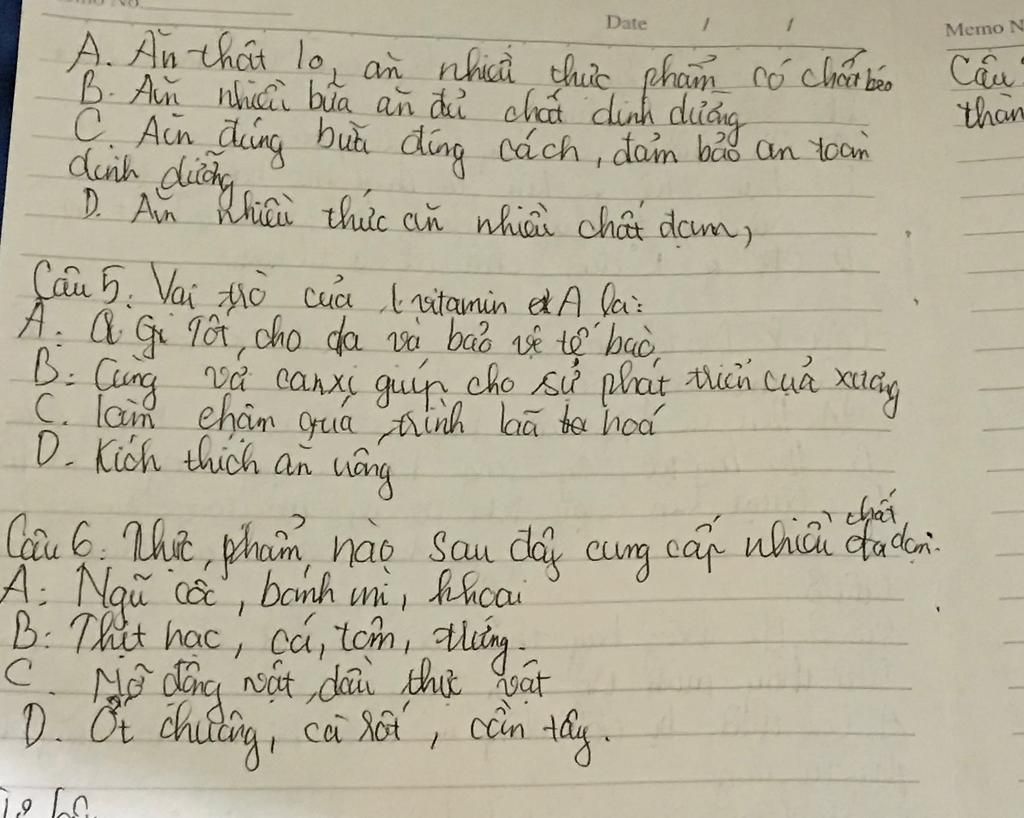 Date / /
Memo N
A. Ăn thật lo, ăn nhiều thực phẩm có chất béo
B. Ăn nhiều bữa ăn đủ chất dinh dưỡng
C. Ăn đúng bữa đúng cách, đảm bảo an toàn
dinh dưỡng
D. Ăn nhiều thức ăn nhiều chất đạm,
Câu
thàn
Câu 5: Vai trò của vitamin A là:
A: Tốt, cho da và bảo vệ tế bào
B: Cùng vá canxi giúp cho sử phát triển của xương
C. làm chậm quá trình lã hoá
D. Kích thích ăn uống
Câu 6: Thực phẩm nào sau đây cung cấp nhiều chất đạm.
A: Ngũ cốc, bánh mì, khoai
B: Thịt nạc, cá, tôm, trứng.
C. Mỡ động vật, dầu thực vật
D. Ớt chuông, cà rốt, cần tây.